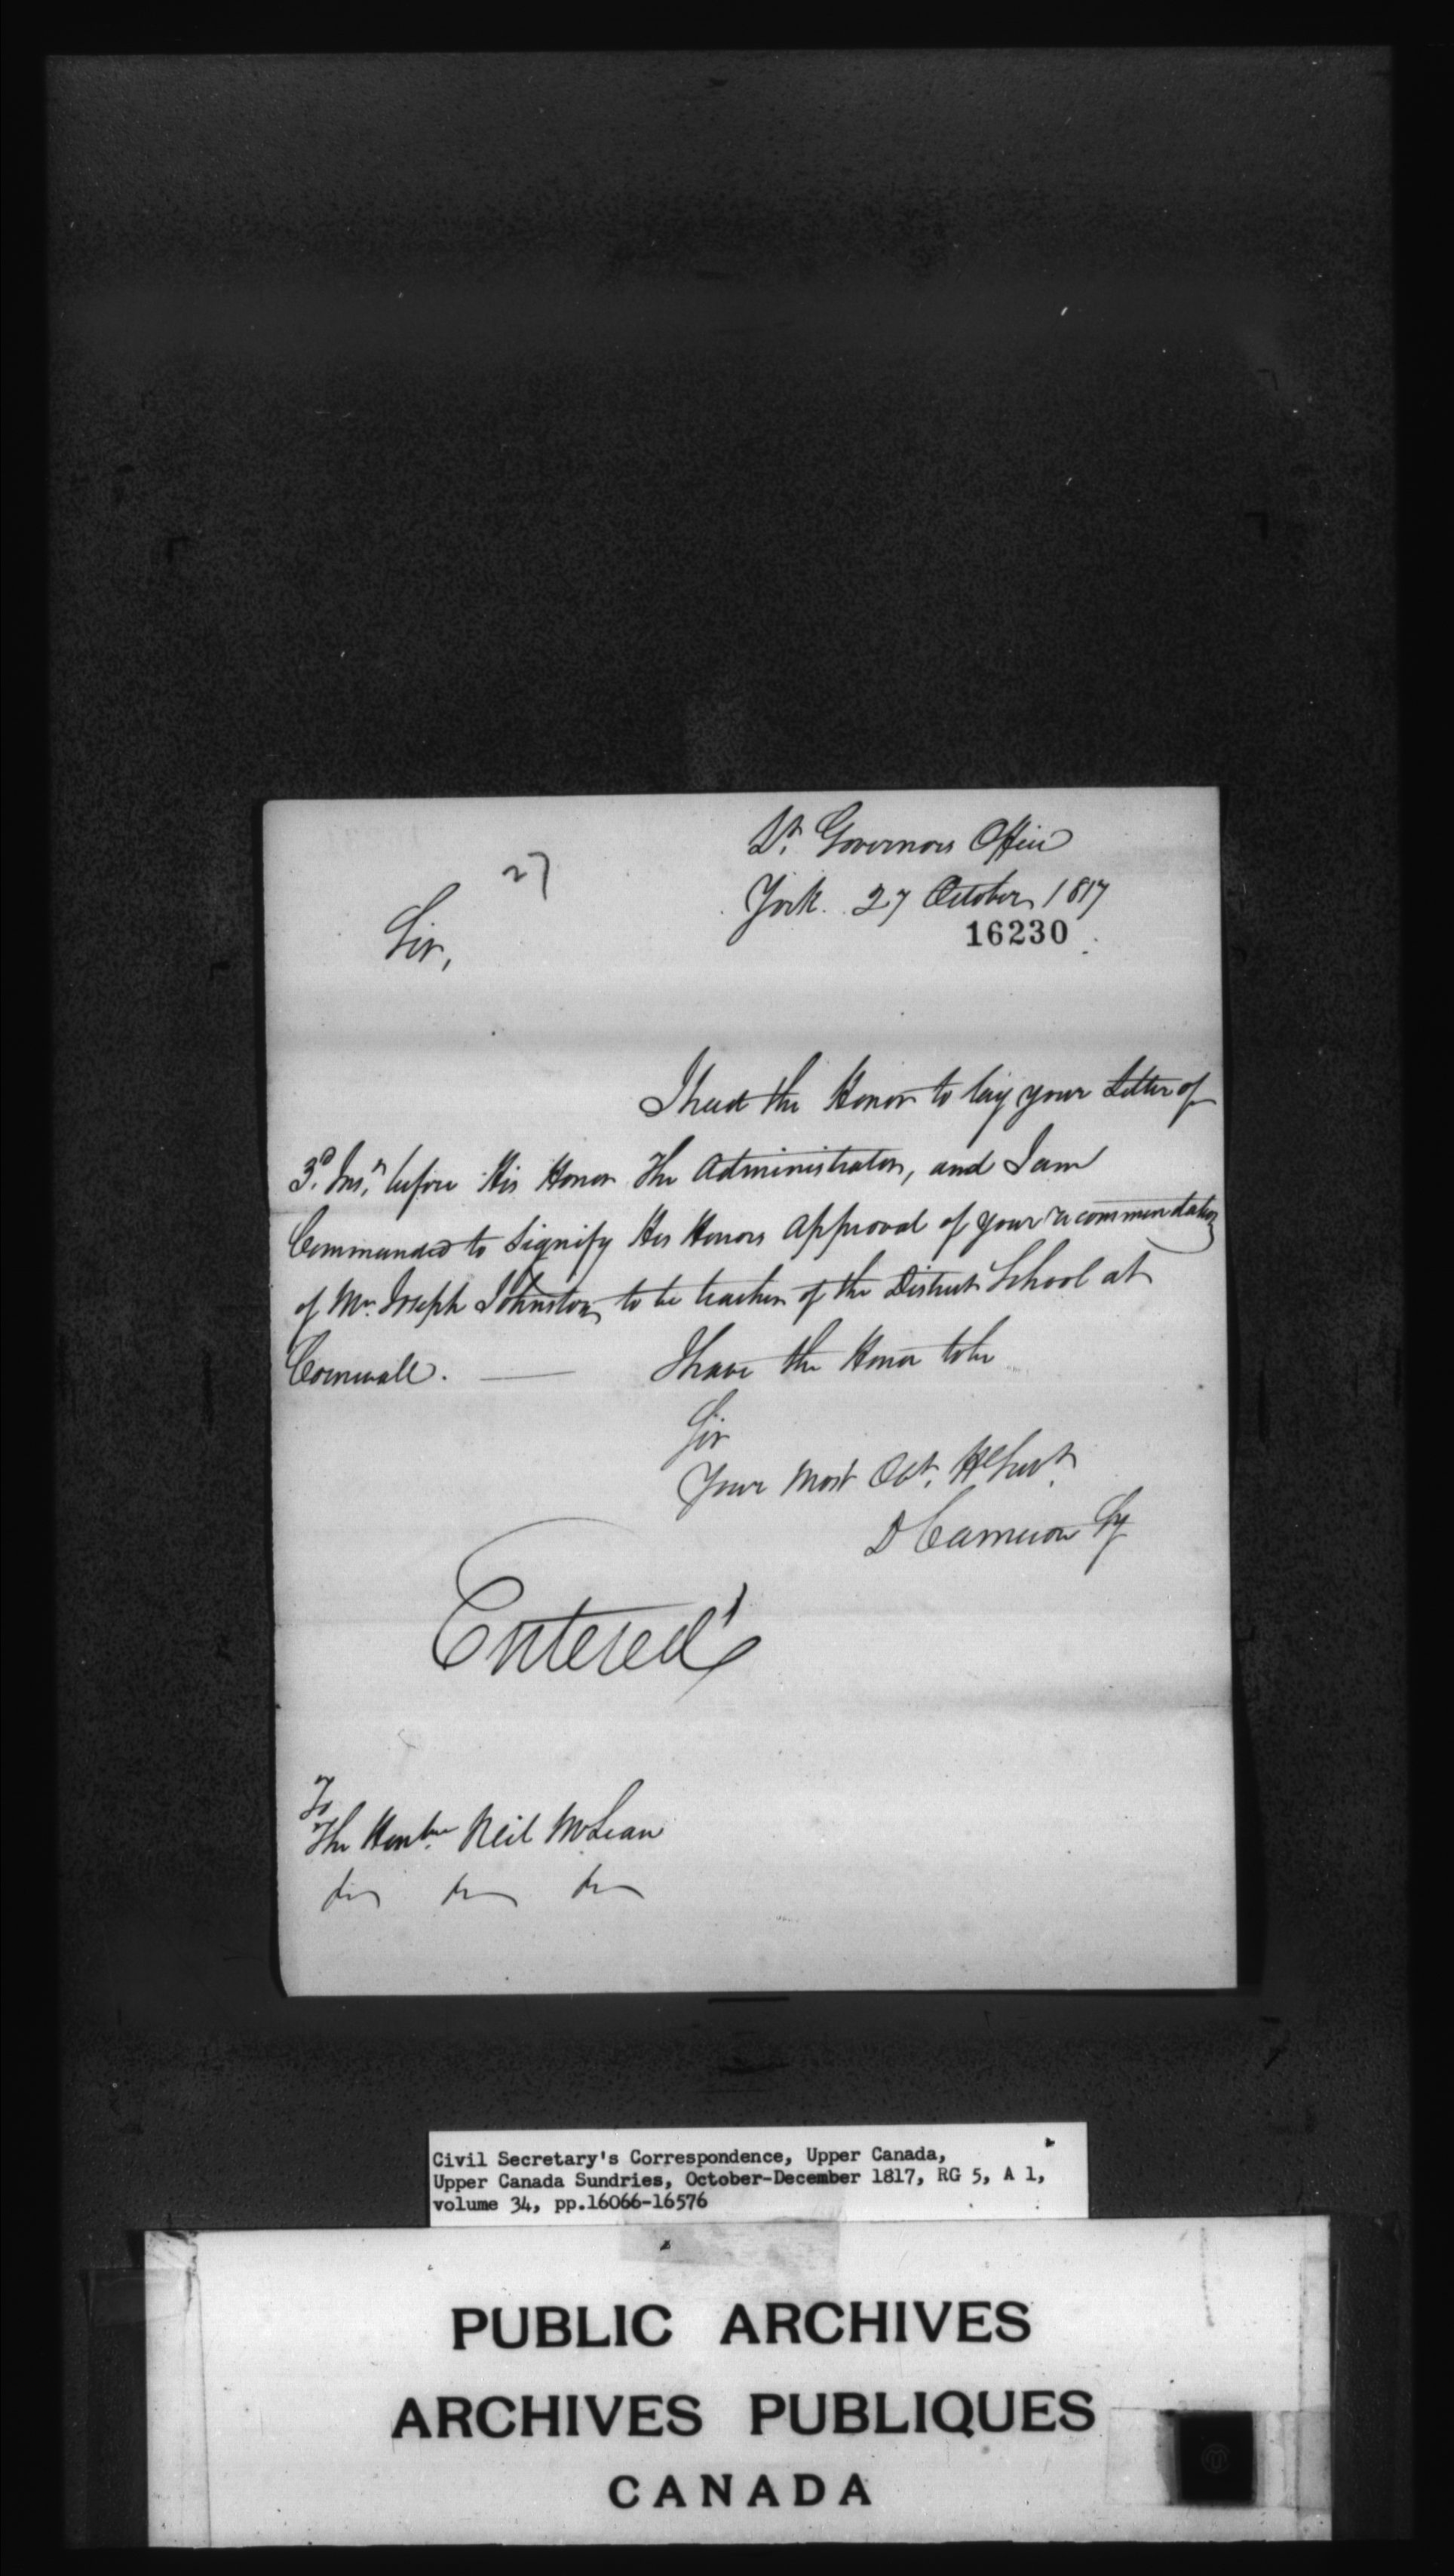 Lt. Governors Office
27
York. 27 October 1817
16230
Sir,
I had the Honor to lay your Letter of
3d. Inst. before His Honor The Administrator, and I am
Commanded to Signify His Honors approval of your recommendation
of Mr. Joseph Johnston to be teacher of the District School at
Cornwall. — I have the Honor to be
Sir
Your Most Obt. Hl Servt.
D Cameron Sy
Entered
To
The Honble Neil McLean
PUBLIC ARCHIVES
ARCHIVES PUBLIQUES
CANADA
Civil Secretary's Correspondence, Upper Canada,
Upper Canada Sundries, October-December 1817, RG 5, A 1,
volume 34, pp.16066-16576